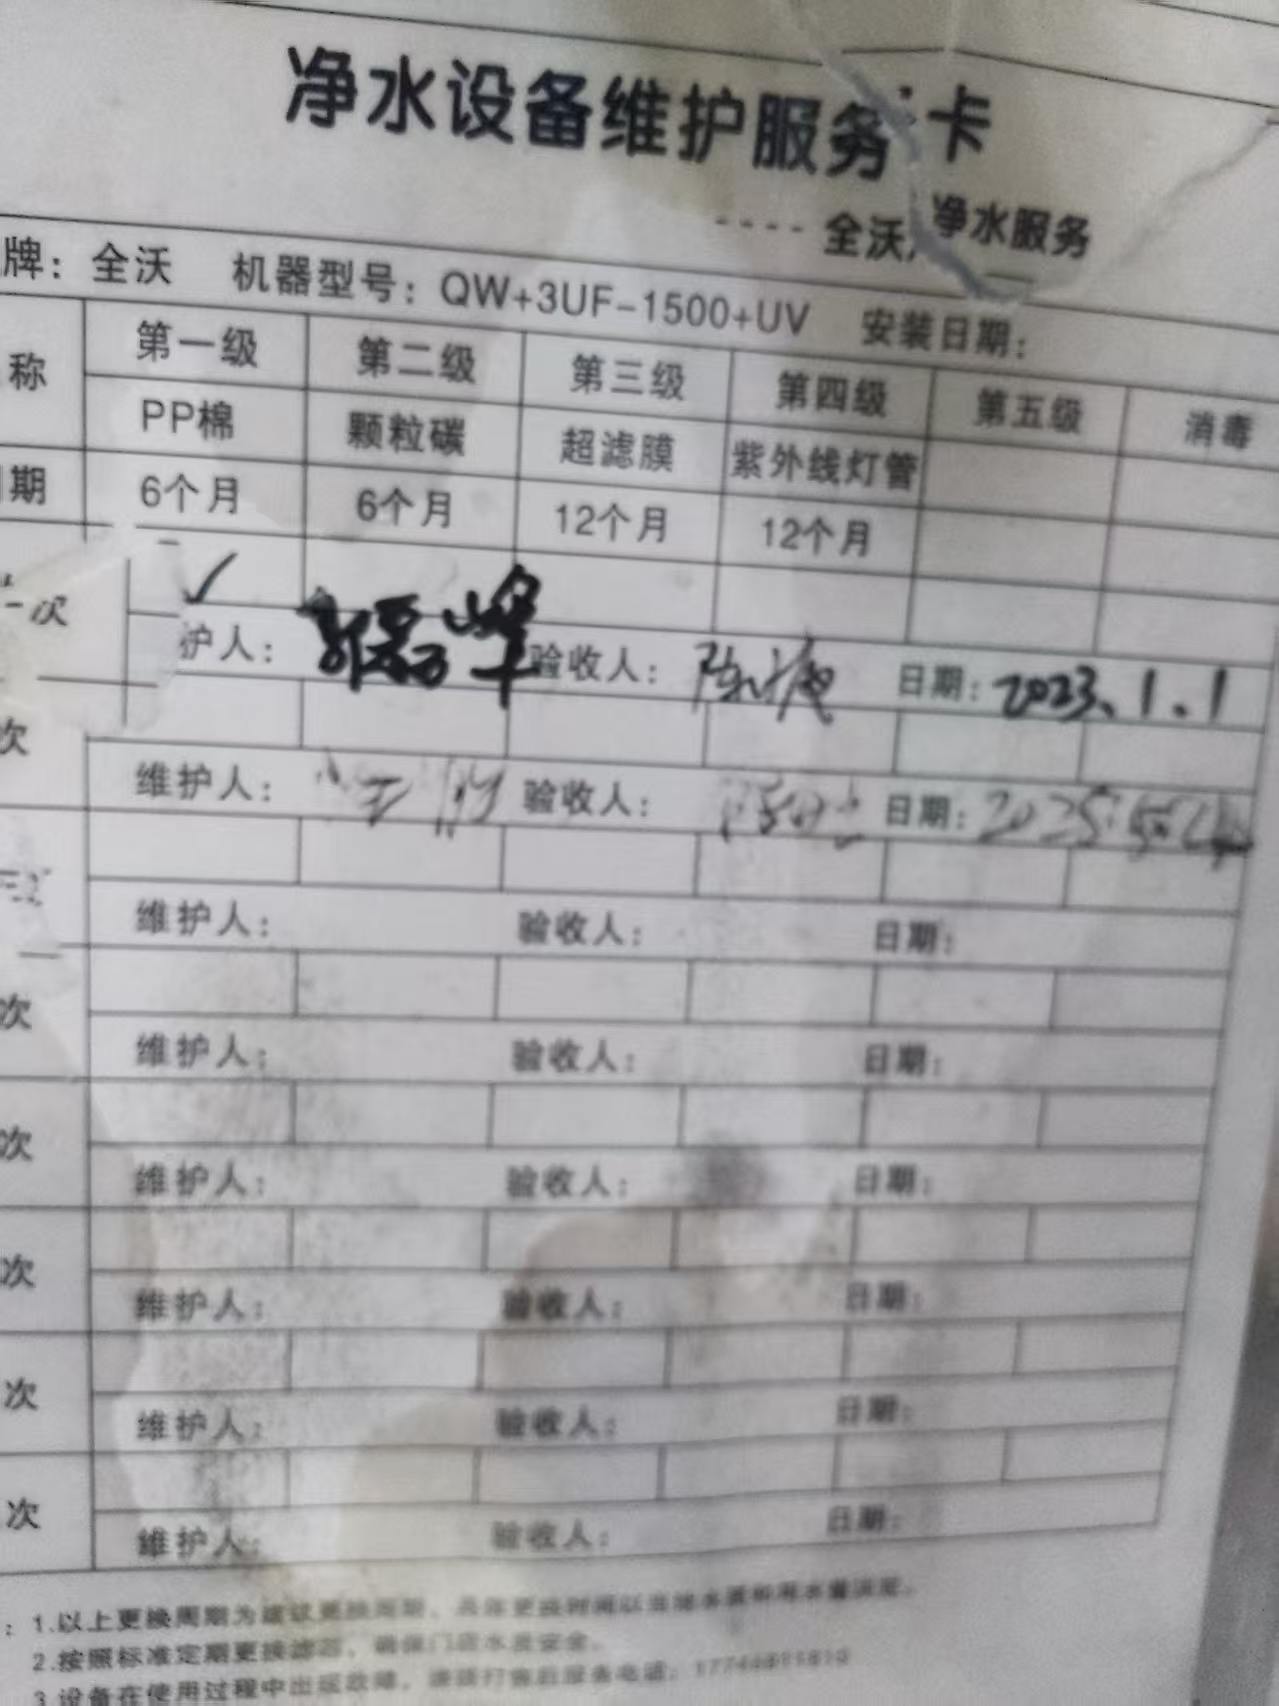 净水设备维护服务卡
---- 全沃净水服务
牌：全沃 机器型号：QW+3UF-1500+UV 安装日期：
称 第一级 第二级 第三级 第四级 第五级 消毒
PP棉 颗粒碳 超滤膜 紫外线灯管
期 6个月 6个月 12个月 12个月
一次 ✓
护人： 验收人： 日期：2023.1.1
次
维护人： 验收人： 日期：2025
维护人： 验收人： 日期：
次
维护人： 验收人： 日期：
次
维护人： 验收人： 日期：
次
维护人： 验收人： 日期：
次
维护人： 验收人： 日期：
次
维护人： 验收人： 日期：
：1.以上更换周期为建议更换周期，具体更换时间以当地水质和用水量决定。
2.按照标准定期更换滤芯，确保门店水质安全。
3.设备在使用过程中出现故障，请拨打售后服务电话：